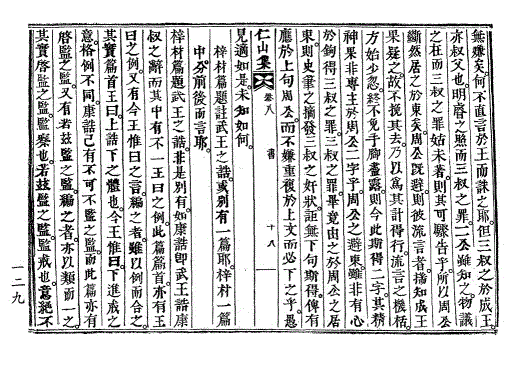 無嫌矣何不直言於王而誅之耶但三叔之於成王
亦叔父也明啓之爲而三叔之罪二公雖知之物議
之在而三叔之罪姑未著則其可驟告乎所以周公
黜然居之於東矣周公旣避則彼流言者揣知成王
果疑之故不復其去乃以爲其計得行流言之機括
方始少忽終不免手脚盡露則今此斯得二字其精
神果非專主於周公二字乎周公之避東雖非有心
於鉤得三叔之罪三叔之罪畢竟由之於周公之居
東則史筆之摘發三叔之奸狀詎無下句斯得俾有
應於上句周公而不嫌重復於上文而必下之乎愚
見適如是未知如何
梓材篇題註武王之誥或別有一篇耶梓材一篇
中分前後而言耶
梓材篇題武王之誥非是別有如康誥卽武王誥康
叔之辭而其中有不一王曰之例此篇篇首亦有王
曰之例又有今王惟曰之言編之者雖以例而合之
其實篇首王曰上誥下之體也今王惟曰下進戒之
意格例不同康誥已有不可不監之監而此篇亦有
啓監之監又有若玆監之監編之者亦以類而一之
其實啓監之監監察也若玆監之監監戒也意絶不
仁山集 卷八 書 十八
一二九